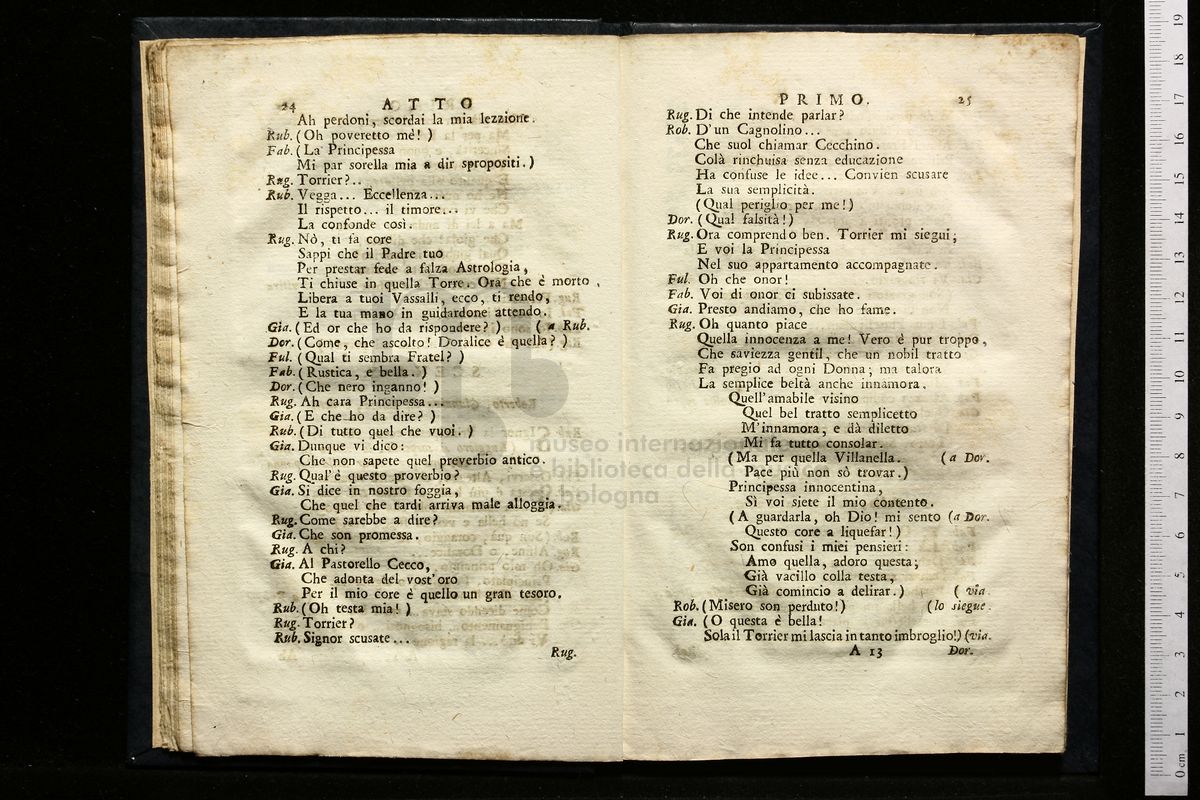 24 ATTO
Ah perdoni, scordai la mia lezzione.
Rub. (Oh poveretto mè! )
Fab. (La Principessa
Mi par sorella mia a dir spropositi.)
Rug. Torrier?..
Rub. Vegga... Eccellenza...
Il rispetto... il timore...
La confonde così.
Rug. Nò, ti fa core
Sappi che il Padre tuo
Per prestar fede a falza Astrologia,
Ti chiuse in quella Torre. Ora che è morto,
Libera a tuoi Vassalli, ecco, ti rendo,
E la tua mano in guidardone attendo.
Gia. (Ed or che ho da rispondere? ) ( a Rub.
Dor. (Come, che ascolto! Doralice è quella? )
Ful. (Qual ti sembra Fratel? )
Fab. (Rustica, e bella. )
Dor. (Che nero inganno! )
Rug. Ah cara Principessa...
Gia. (E che ho da dire? )
Rub. (Di tutto quel che vuoi. )
Gia. Dunque vi dico:
Che non sapete quel preverbio antico.
Rug. Qual'è questo proverbio?
Gia. Si dice in nostro foggia,
Che quel che tardi arriva male alloggia.
Rug. Come sarebbe a dire?
Gia. Che son promessa.
Rug. A chi?
Gia. Al Pastorello Cecco,
Che adonta del vost'oro
Per il mio core è quello un gran tesoro.
Rub. (Oh testa mia! )
Rug. Torrier?
Rub. Signor scusate...
Rug.
PRIMO. 25
Rug. Di che intende parlar?
Rob. D'un Cagnolino...
Che suol chiamar Cecchino.
Colà rinchiusa senza educazione
Ha confuse le idee... Convien scusare
La sua semplicità.
(Qual periglio per me!)
Dor. (Qual falsità!)
Rug. Ora comprendo ben. Torrier mi siegui;
E voi la Principessa
Nel suo appartamento accompagnate.
Ful. Oh che onor!
Fab. Voi di onor ci subissate.
Gia. Presto andiamo, che ho fame.
Rug. Oh quanto piace
Quella innocenza a me! Vero è pur troppo,
Che saviezza gentil, che un nobil tratto
Fa pregio ad ogni Donna; ma talora
La semplice beltà anche innamora.
Quell'amabile visino
Quel bel tratto semplicetto
M'innamora, e dà diletto
Mi fa tutto consolar.
(Ma per quella Villanella. (a Dor.
Pace più non sò trovar.)
Principessa innocentina,
Sì voi siete il mio contento.
(A guardarla, oh Dio! mi sento (a Dor.
Questo core a liquefar!)
Son confusi i miei pensieri:
Amo quella, adoro questa;
Già vacillo colla testa,
Già comincio a delirar.) ( via.
Rob. (Misero son perduto!) (lo siegue.
Gia. (O questa è bella!
Sola il Torrier mi lascia in tanto imbroglio!) (via.
A 13 Dor.
museo internazionale
e biblioteca della
di bologna
0 cm 1 2 3 4 5 6 7 8 9 10 11 12 13 14 15 16 17 18 19